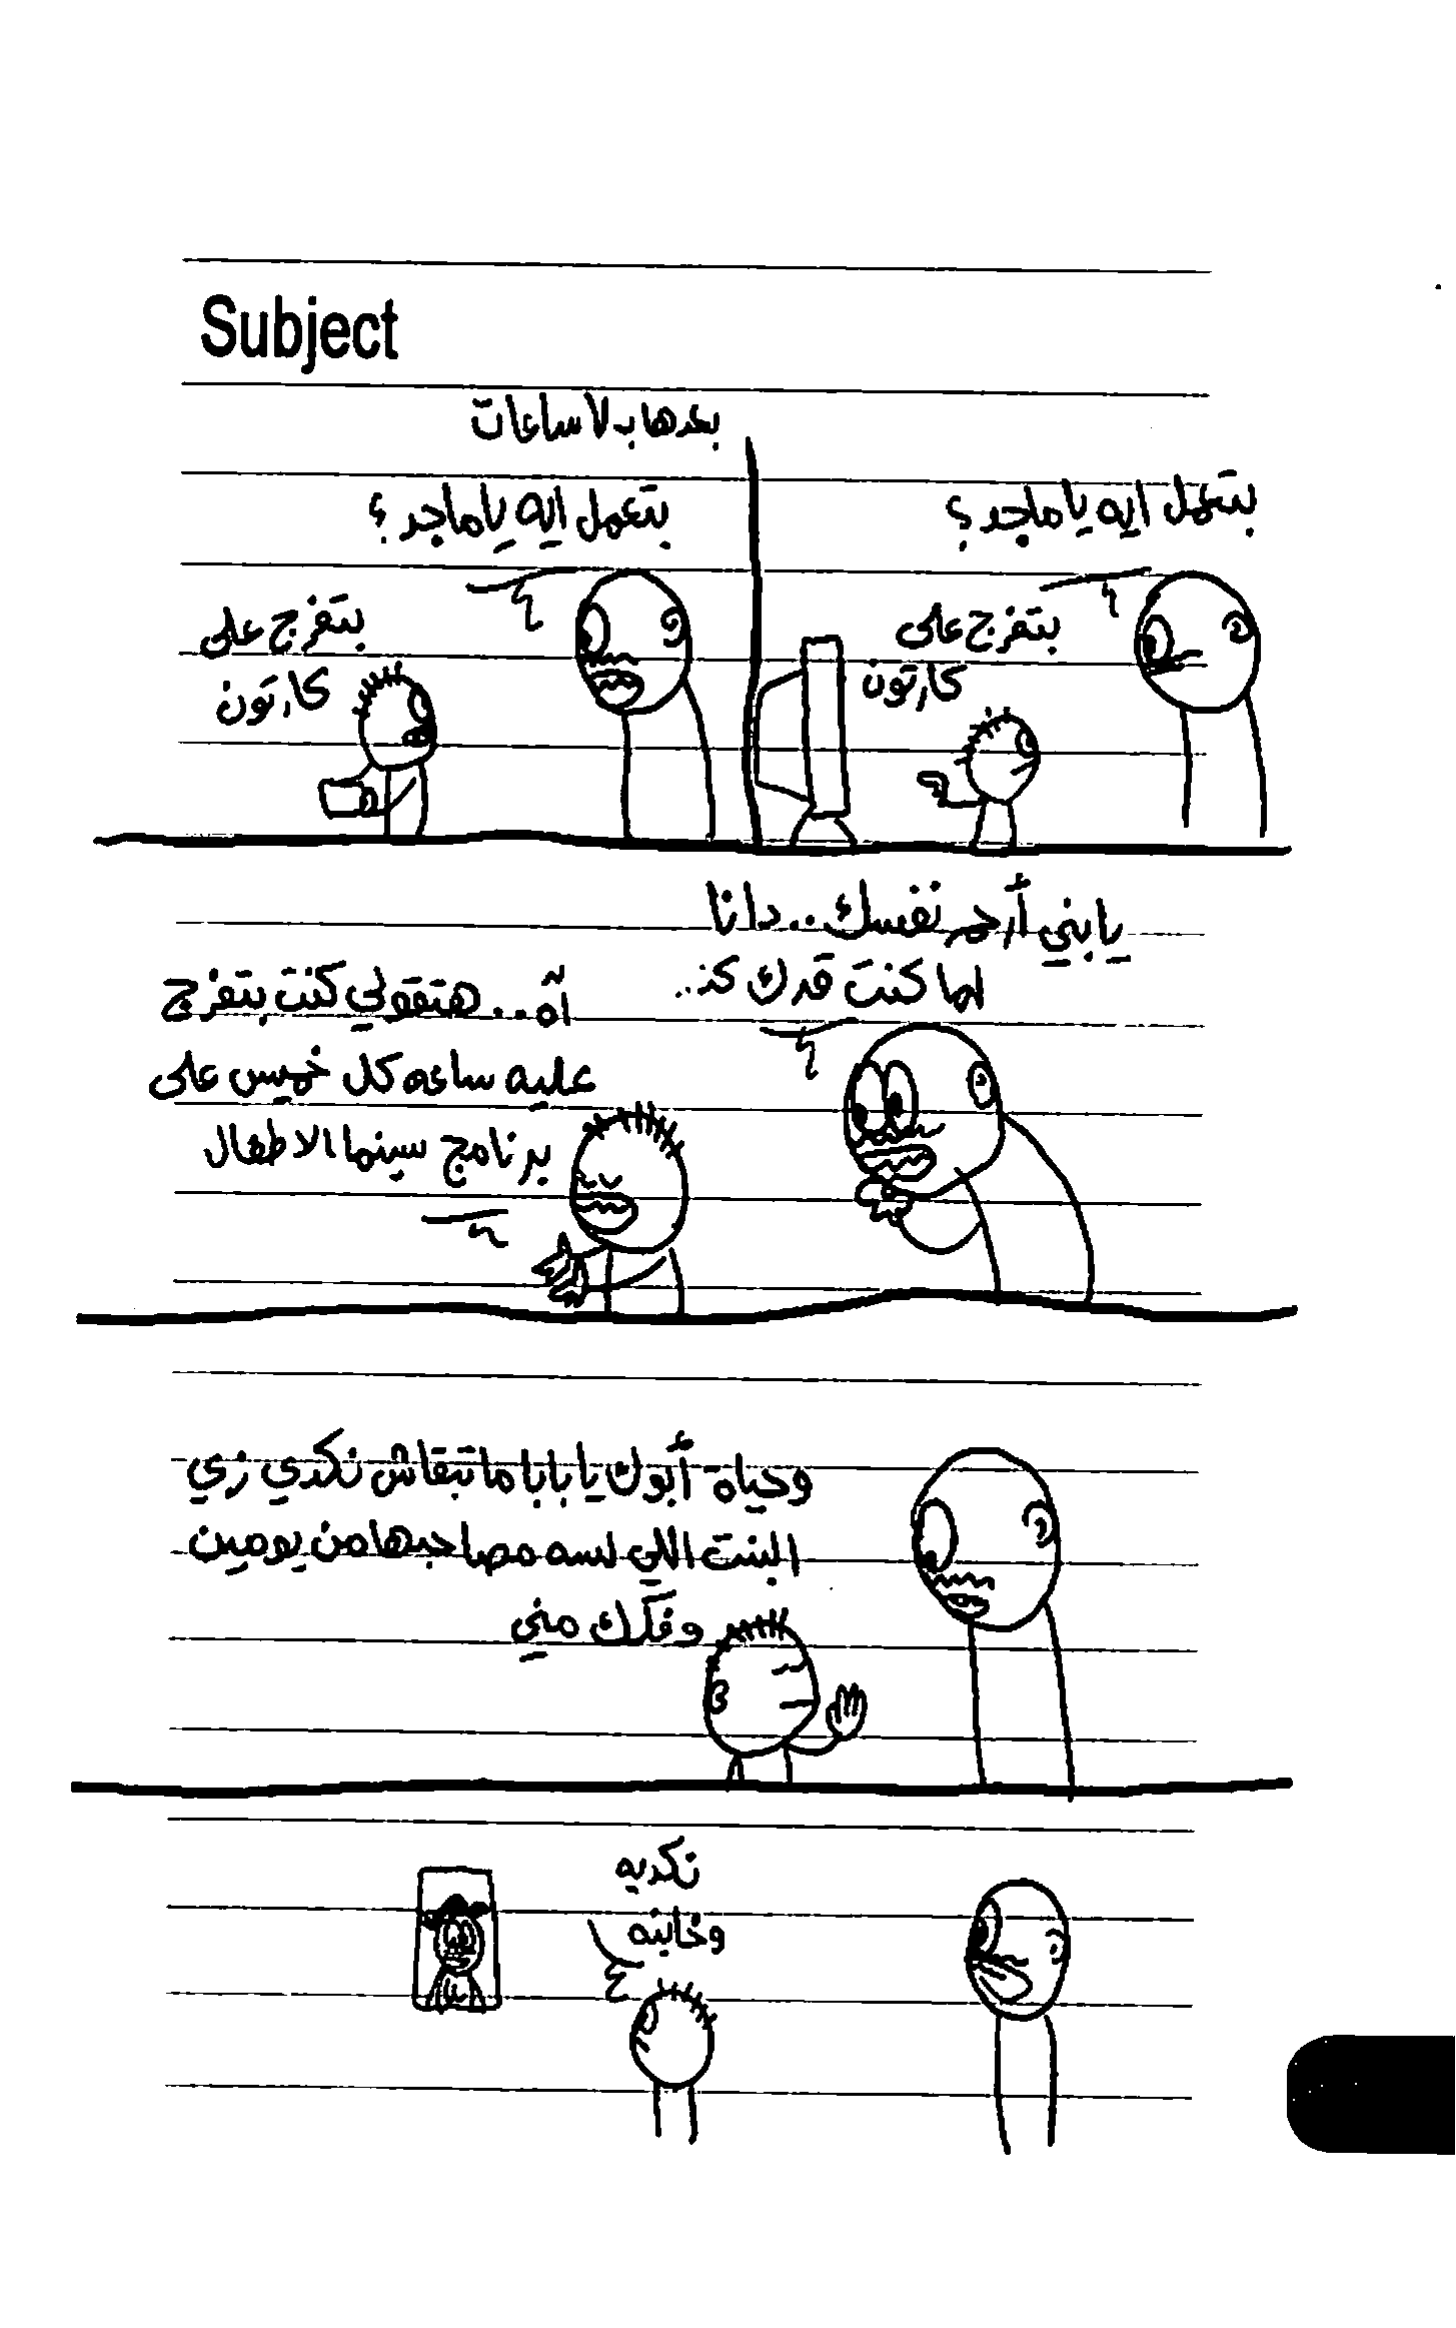 Subject
بتعمل ايه يا ماجد؟
بتفرج على
كارتون
بعدها بـ ٧ ساعات
بتعمل ايه يا ماجد؟
بتفرج على
كارتون
يا بني أرحم نفسك.. دا انا
لما كنت قدك كنـ..
آه.. هتقولي كنت بتفرج
عليه ساعه كل خميس على
برنامج سينما الاطفال
وحياة أبوك يا بابا ما تبقاش نكدي زي
البنت اللي لسه مصاحبها من يومين
وفكك مني
نكديه
وخاينه